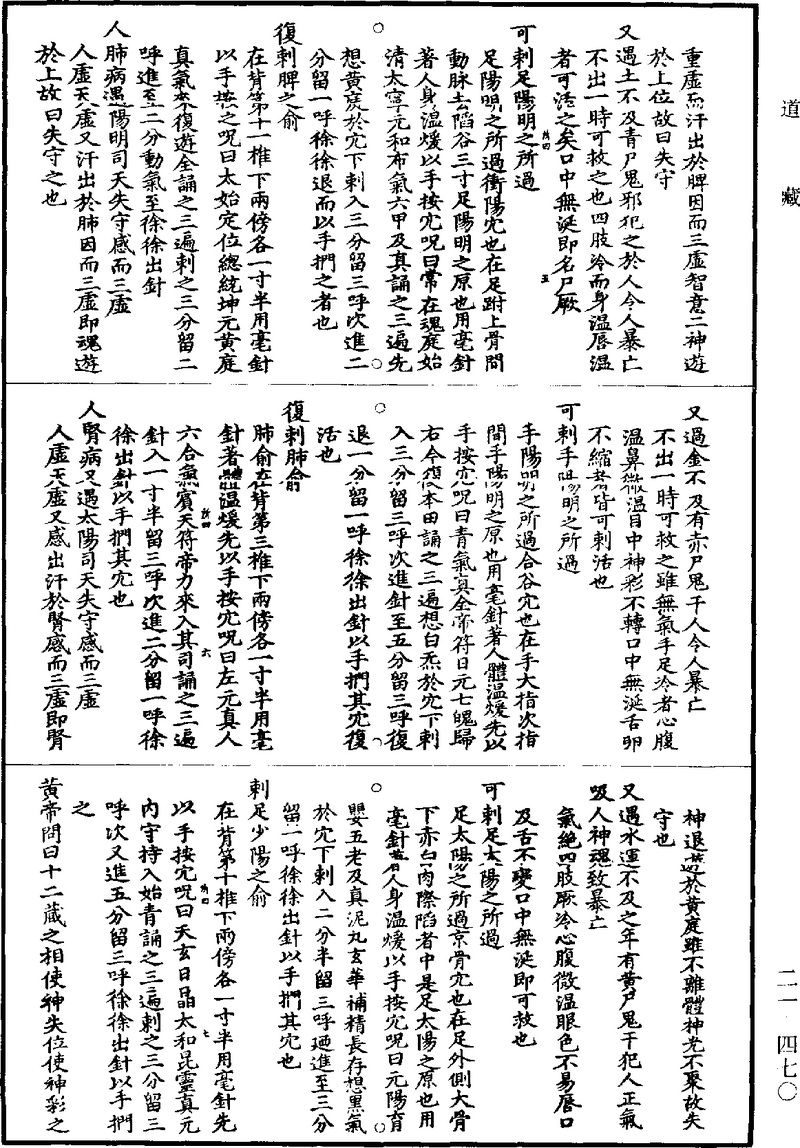 道藏
二一·四七〇
重虛而汗出於脾因而三虛智意二神遊
於上位故曰失守
又遇土不及青尸鬼邪犯之於人令人暴亡
不出一時可救之也四肢冷而身溫唇溫
者可活之矣口中無涎即名尸厥
可刺足陽明之所過
足陽明之所過衝陽穴也在足跗上骨間
動脉去陷谷三寸足陽明之原也用毫針
著人身溫煖以手按穴呪曰常在魂庭始
清太寧元和布氣六甲及真誦之三遍先
想黃庭於穴下刺入三分留三呼次進二
分留一呼徐徐退而以手捫之者也
復刺脾之俞
在背第十一椎下兩傍各一寸半用毫針
以手按之呪曰太始定位總統坤元黃庭
真氣來復遊全誦之三遍刺之三分留二
呼進至二分動氣至徐徐出針
人肺病遇陽明司天失守感而三虛
人虛天虛又汗出於肺因而三虛即魂遊
於上故曰失守之也
又遇金不及有赤尸鬼干人令人暴亡
不出一時可救之雖無氣手足冷者心腹
溫鼻微溫目中神彩不轉口中無涎舌卵
不縮者皆可刺活也
可刺手陽明之所過
手陽明之所過合谷穴也在手大指次指
間手陽明之原也用毫針著人體溫煖先以
手按穴呪曰青氣真全帝符日元七魄歸
右今復本田誦之三遍想白炁於穴下刺
入三分留三呼次進針至五分留三呼復
退一分留一呼徐徐出針以手捫其穴復
活也
復刺肺俞
肺俞在背第三椎下兩傍各一寸半用毫
針著體溫煖先以手按穴呪曰左元真人
六合氣賓天符帝力來入其司誦之三遍
針入一寸半留三呼次進二分留一呼徐
徐出針以手捫其穴也
人腎病又遇太陽司天失守感而三虛
人虛天虛又感出汗於腎感而三虛即腎
神退遊於黃庭雖不離體神光不聚故失
守也
又遇水運不及之年有黃尸鬼干犯人正氣
吸人神魂致暴亡
氣絕四肢厥冷心腹微溫眼色不易唇口
及舌不變口中無涎即可救也
可刺足太陽之所過
足太陽之所過京骨穴也在足外側大骨
下赤白肉際陷者中是足太陽之原也用
毫針著人身溫煖以手按穴呪曰元陽育
嬰五老及真泥丸玄華補精長存想黑氣
於穴下刺入二分半留三呼廼進至三分
留一呼徐徐出針以手捫其穴也
刺足少陽之俞
在背第十椎下兩傍各一寸半用毫針先
以手按穴呪曰天玄日晶太和昆靈真元
內守持入始青誦之三遍刺之三分留三
呼次又進五分留三呼徐徐出針以手捫
之
黃帝問曰十二藏之相使神失位使神彩之